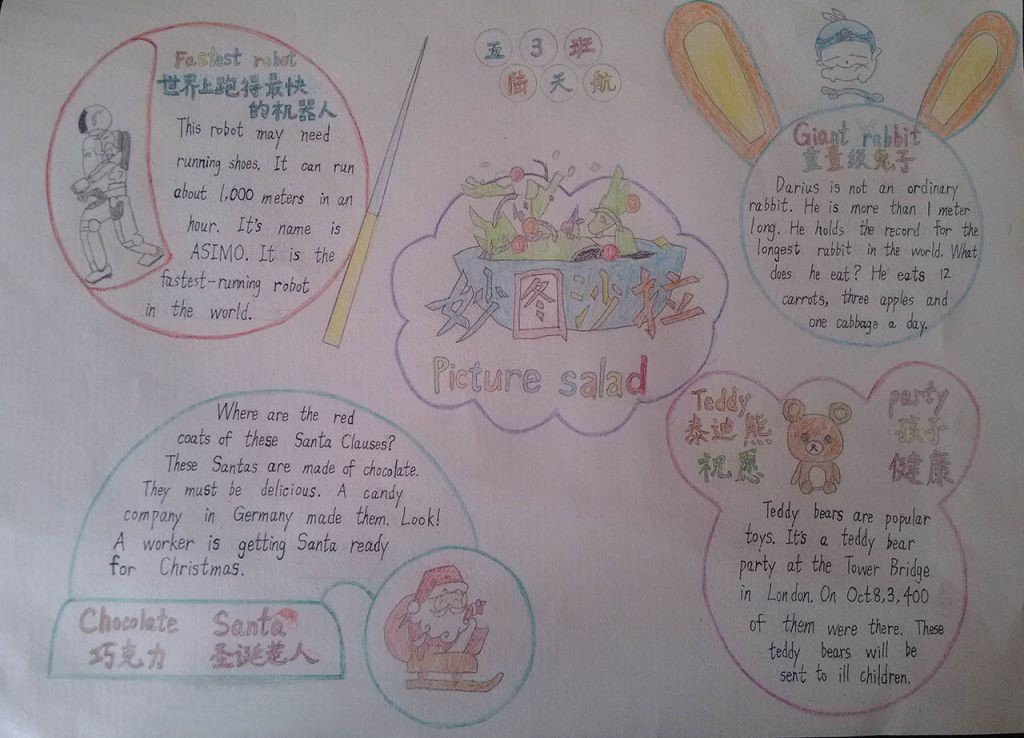 五 3 班
陆 天 航
Fastest robot
世界上跑得最快
的机器人
This robot may need
running shoes. It can run
about 1,000 meters in an
hour. It's name is
ASIMO. It is the
fastest-running robot
in the world.
Giant rabbit
重量级兔子
Darius is not an ordinary
rabbit. He is more than 1 meter
long. He holds the record for the
longest rabbit in the world. What
does he eat? He eats 12
carrots, three apples and
one cabbage a day.
妙图沙拉
Picture salad
Where are the red
coats of these Santa Clauses?
These Santas are made of chocolate.
They must be delicious. A candy
company in Germany made them. Look!
A worker is getting Santa ready
for Christmas.
Chocolate Santa
巧克力 圣诞老人
Teddy party
泰迪熊 孩子
祝愿 健康
Teddy bears are popular
toys. It's a teddy bear
party at the Tower Bridge
in London. On Oct8,3,400
of them were there. These
teddy bears will be
sent to ill children.